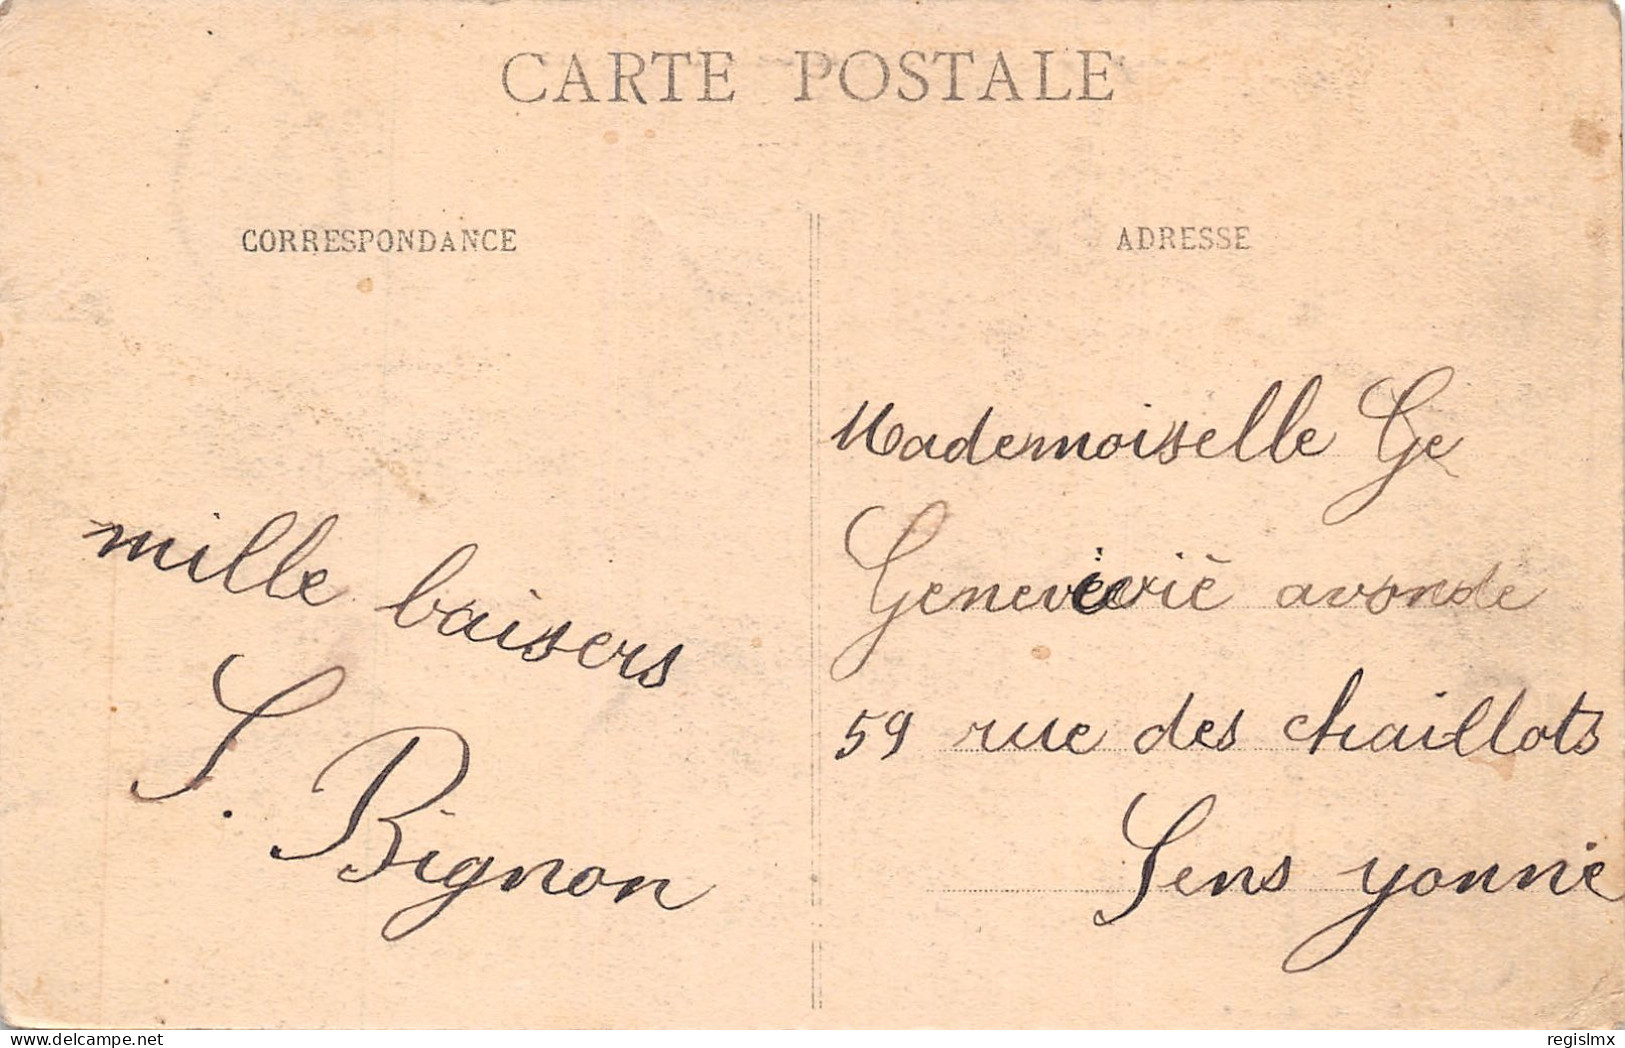 CARTE POSTALE
CORRESPONDANCE
ADRESSE
mille baisers
S. Bignon
Mademoiselle Ge
avonde
59 rue des chaillots
Sens yonne
delcampe.net
regislmx